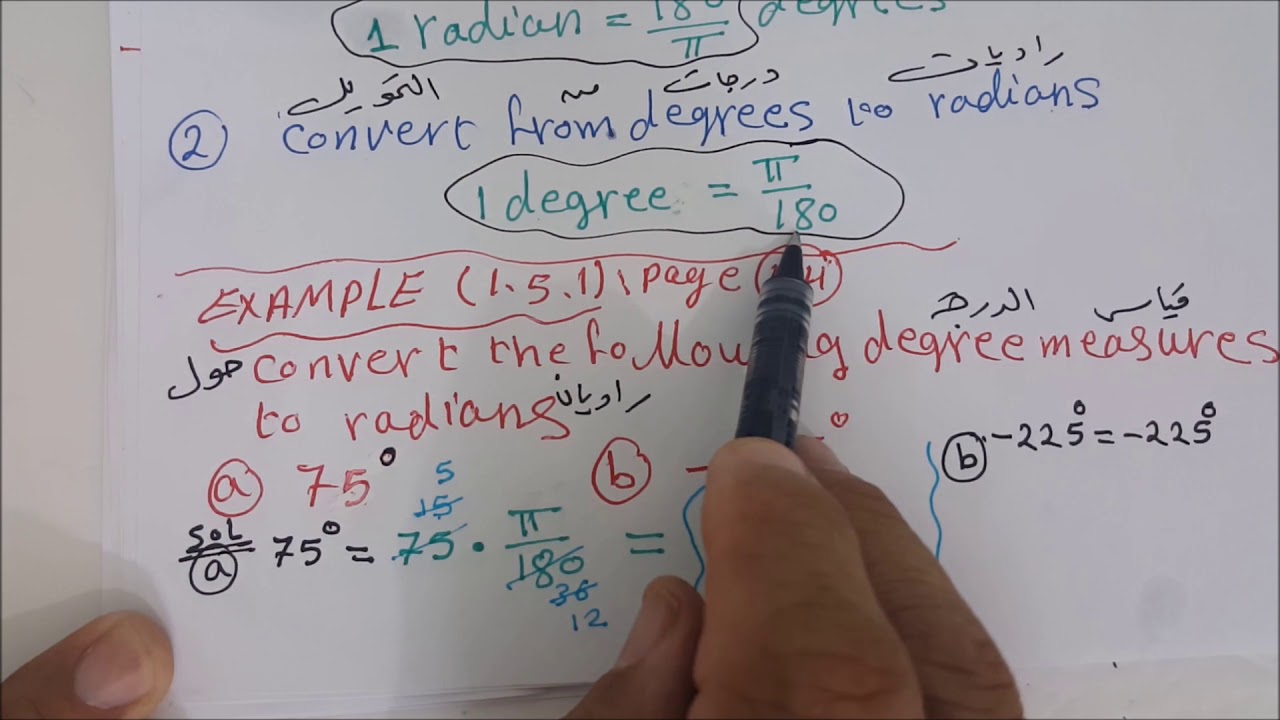 1 radian = 180/π degrees
التحويل من درجات راديات
② convert from degrees to radians
1 degree = π/180
EXAMPLE (1.5.1), page
قياس الدرجه
حول convert the following degree measures
to radians راديان
ⓐ 75° ⓑ - °
ⓑ -225° = -225°
5
15
sol
ⓐ 75° = 75 · π/180 =
36
12